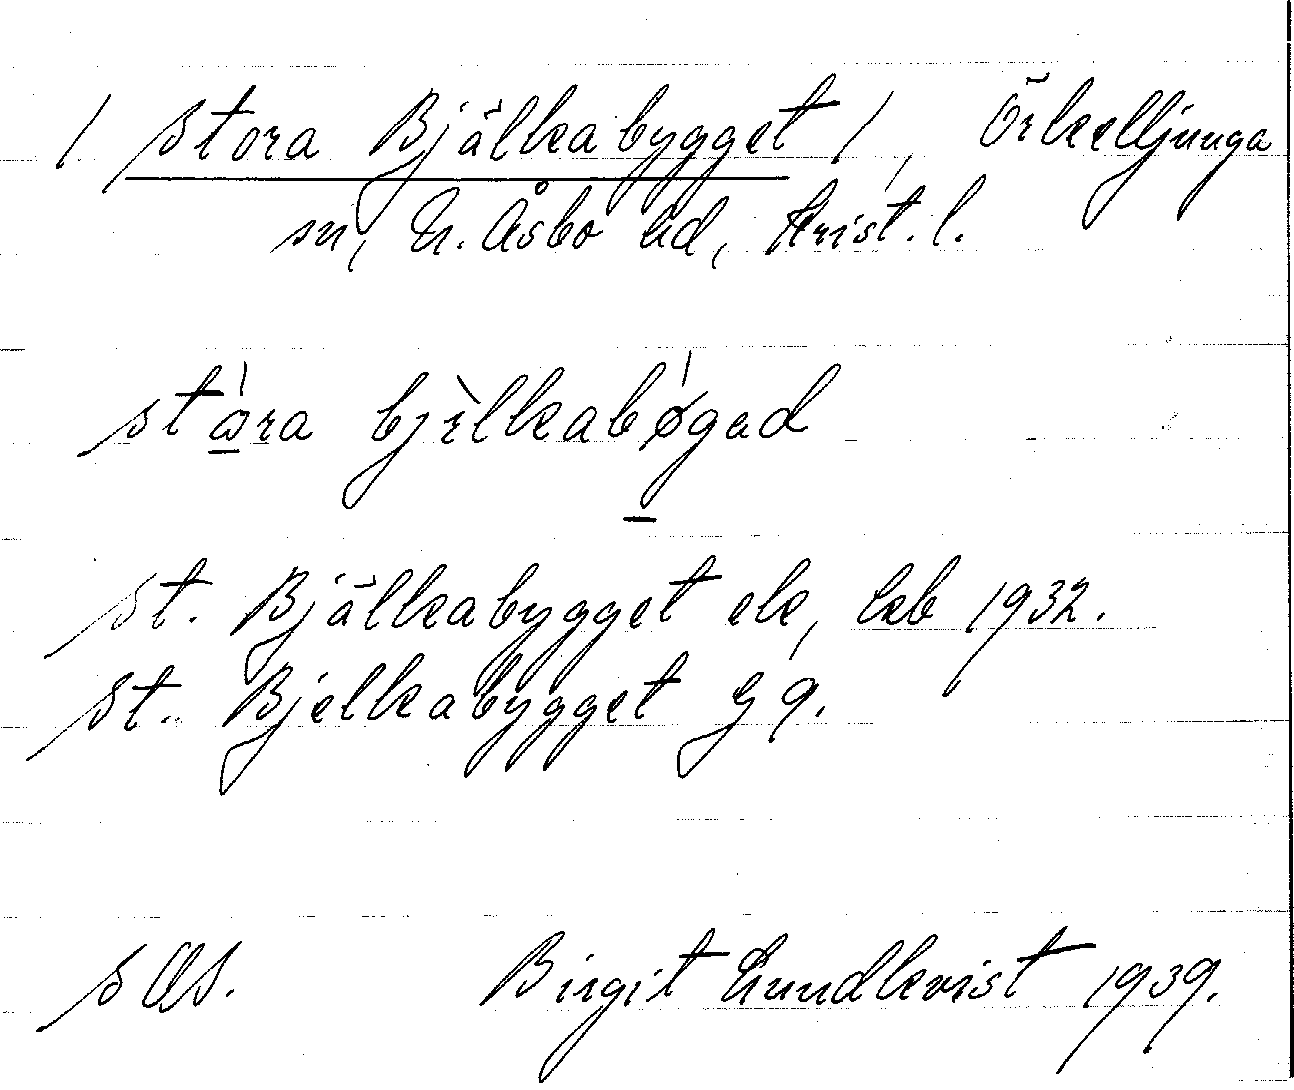 / Stora Bjälkabygget /, Örkelljunga
sn, N. Åsbo hd, Krist. l.
stɷ̀ra bjìlkabǿgad
St. Bjälkabygget ek, lkb 1932.
St. Bjelkabygget
SOS. Birgit Lundkvist 1939.